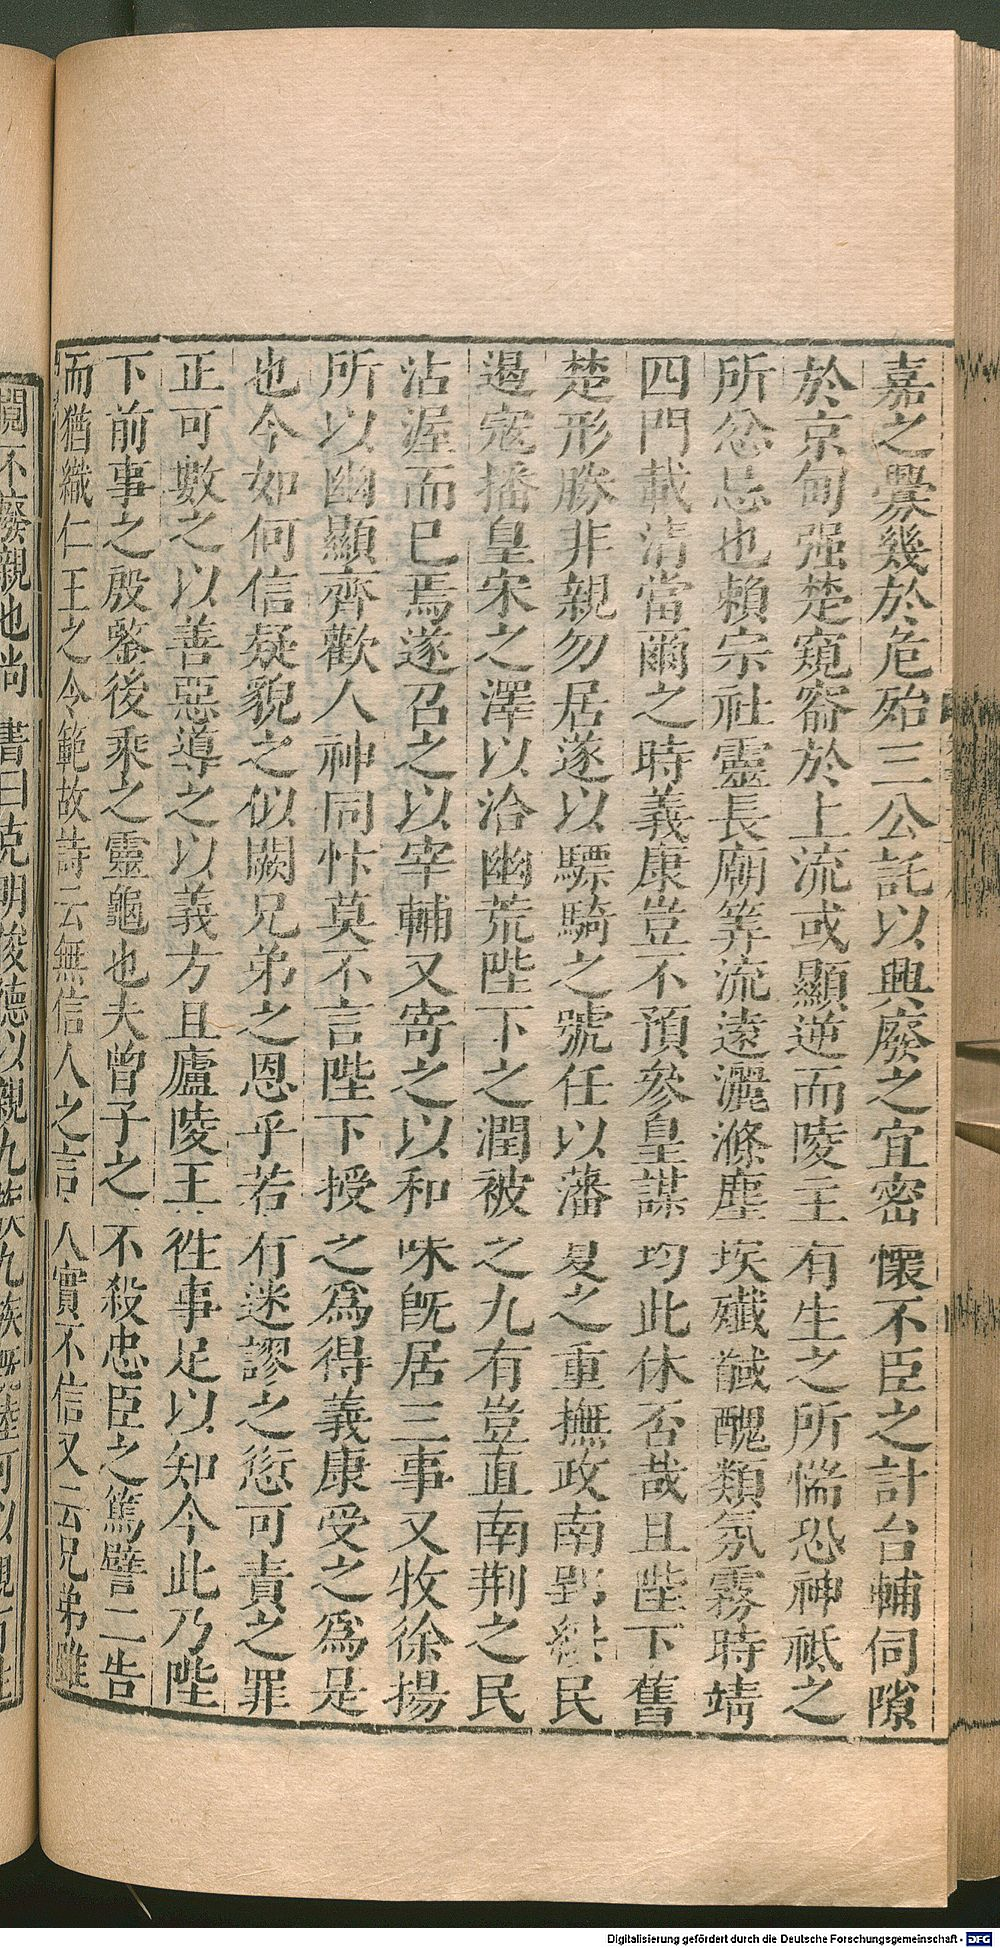 嘉之釁幾於危殆三公託以興廢之宜密懷不臣之計台輔伺隙
於京甸强楚窺窬於上流或顯逆而陵主有生之所惴恐神祗之
所忿忌也賴宗社靈長廟筭流遠灑滌塵埃殲馘醜類氛霧時靖
四門載清當爾之時義康豈不預參皇謀均此休否哉且陛下舊
楚形勝非親勿居遂以驃騎之號任以藩夏之重撫政南郢綏民
遏寇播皇宋之澤以洽幽荒陛下之潤被之九有豈直南荆之民
沾渥而已焉遂召之以宰輔又寄之以和味旣居三事又牧徐揚
所以幽顯齊歡人神同忭莫不言陛下授之爲得義康受之爲是
也今如何信疑貌之似闕兄弟之恩乎若有迷謬之愆可責之罪
正可數之以善惡導之以義方且廬陵王往事足以知今此乃陛
下前事之殷鑒後乘之靈龜也夫曾子之不殺忠臣之篤譬二告
而猶織仁王之令範故詩云無信人之言人實不信又云兄弟雖
閲不廢親也尚書曰克明俊德以親九族九族旣睦可以親百姓
Digitalisierung gefördert durch die Deutsche Forschungsgemeinschaft - DFG